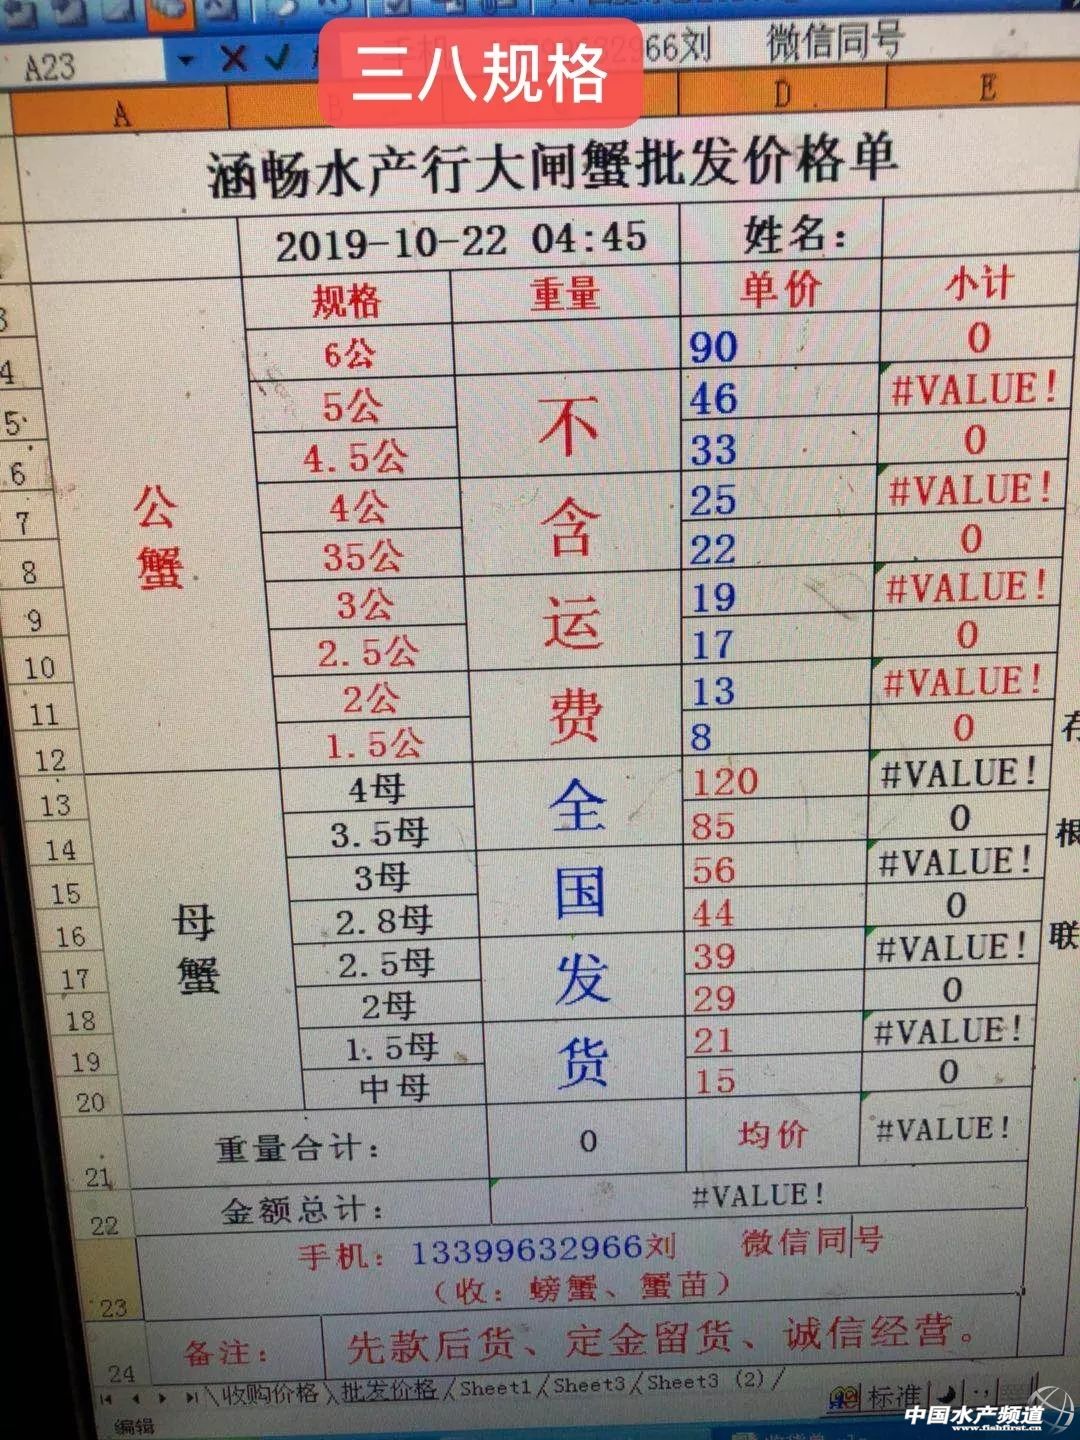 A23
66刘 微信同号
三八规格
A D E
涵畅水产行大闸蟹批发价格单
2019-10-22 04:45 姓名:
规格 重量 单价 小计
公蟹
6公 90 0
5公 46 #VALUE!
4.5公 33 0
4公 25 #VALUE!
35公 22 0
3公 19 #VALUE!
2.5公 17 0
2公 13 #VALUE!
1.5公 8 0
不含运费
母蟹
4母 120 #VALUE!
3.5母 85 0
3母 56 #VALUE!
2.8母 44 0
2.5母 39 #VALUE!
2母 29 0
1.5母 21 #VALUE!
中母 15 0
全国发货
存根联
重量合计: 0 均价 #VALUE!
金额总计: #VALUE!
手机: 13399632966刘 微信同号
(收: 螃蟹、蟹苗)
备注: 先款后货、定金留货、诚信经营。
3
4
5
6
7
8
9
10
11
12
13
14
15
16
17
18
19
20
21
22
23
24
收购价格 批发价格 Sheet1 Sheet3 Sheet3 (2)
标准
编辑
中国水产频道
www.fishfirst.cn